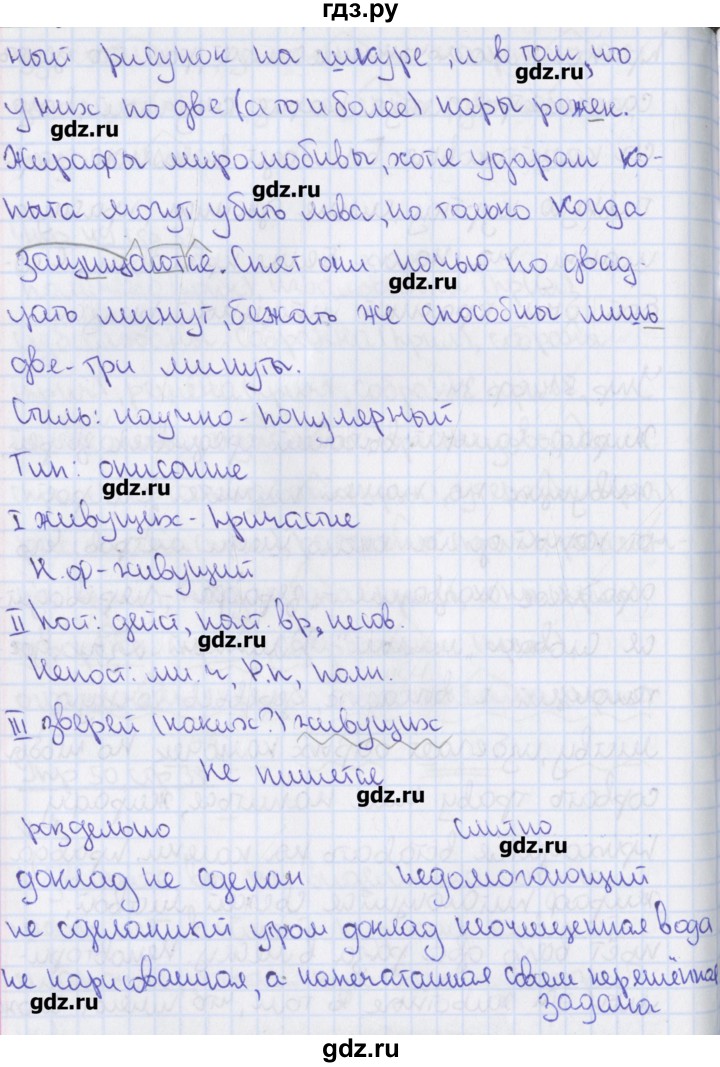 гдз.ру
ный рисунок на шкуре, и в том, что
gdz.ru
у них по две (а то и более) пары рожек.
gdz.ru
Жирафы миролюбивы, хотя ударом ко-
gdz.ru
пыта могут убить льва, но только когда
защищаются. Спят они ночью по двад-
gdz.ru
цать минут, бежать же способны лишь
две-три минуты.
Стиль: научно-популярный
Тип: описание
gdz.ru
I живущих - причастие
Н.ф - живущий
II Пост: дейст, наст. вр, несов.
gdz.ru
Непост: мн. ч, Р.п, полн.
III зверей (каких?) живущих
Не пишется
gdz.ru
раздельно слитно
gdz.ru
доклад не сделан недомогающий
не сделанный утром доклад неочищенная вода
не нарисованная, а напечатанная совсем нерешённая
gdz.ru
задача
gdz.ru